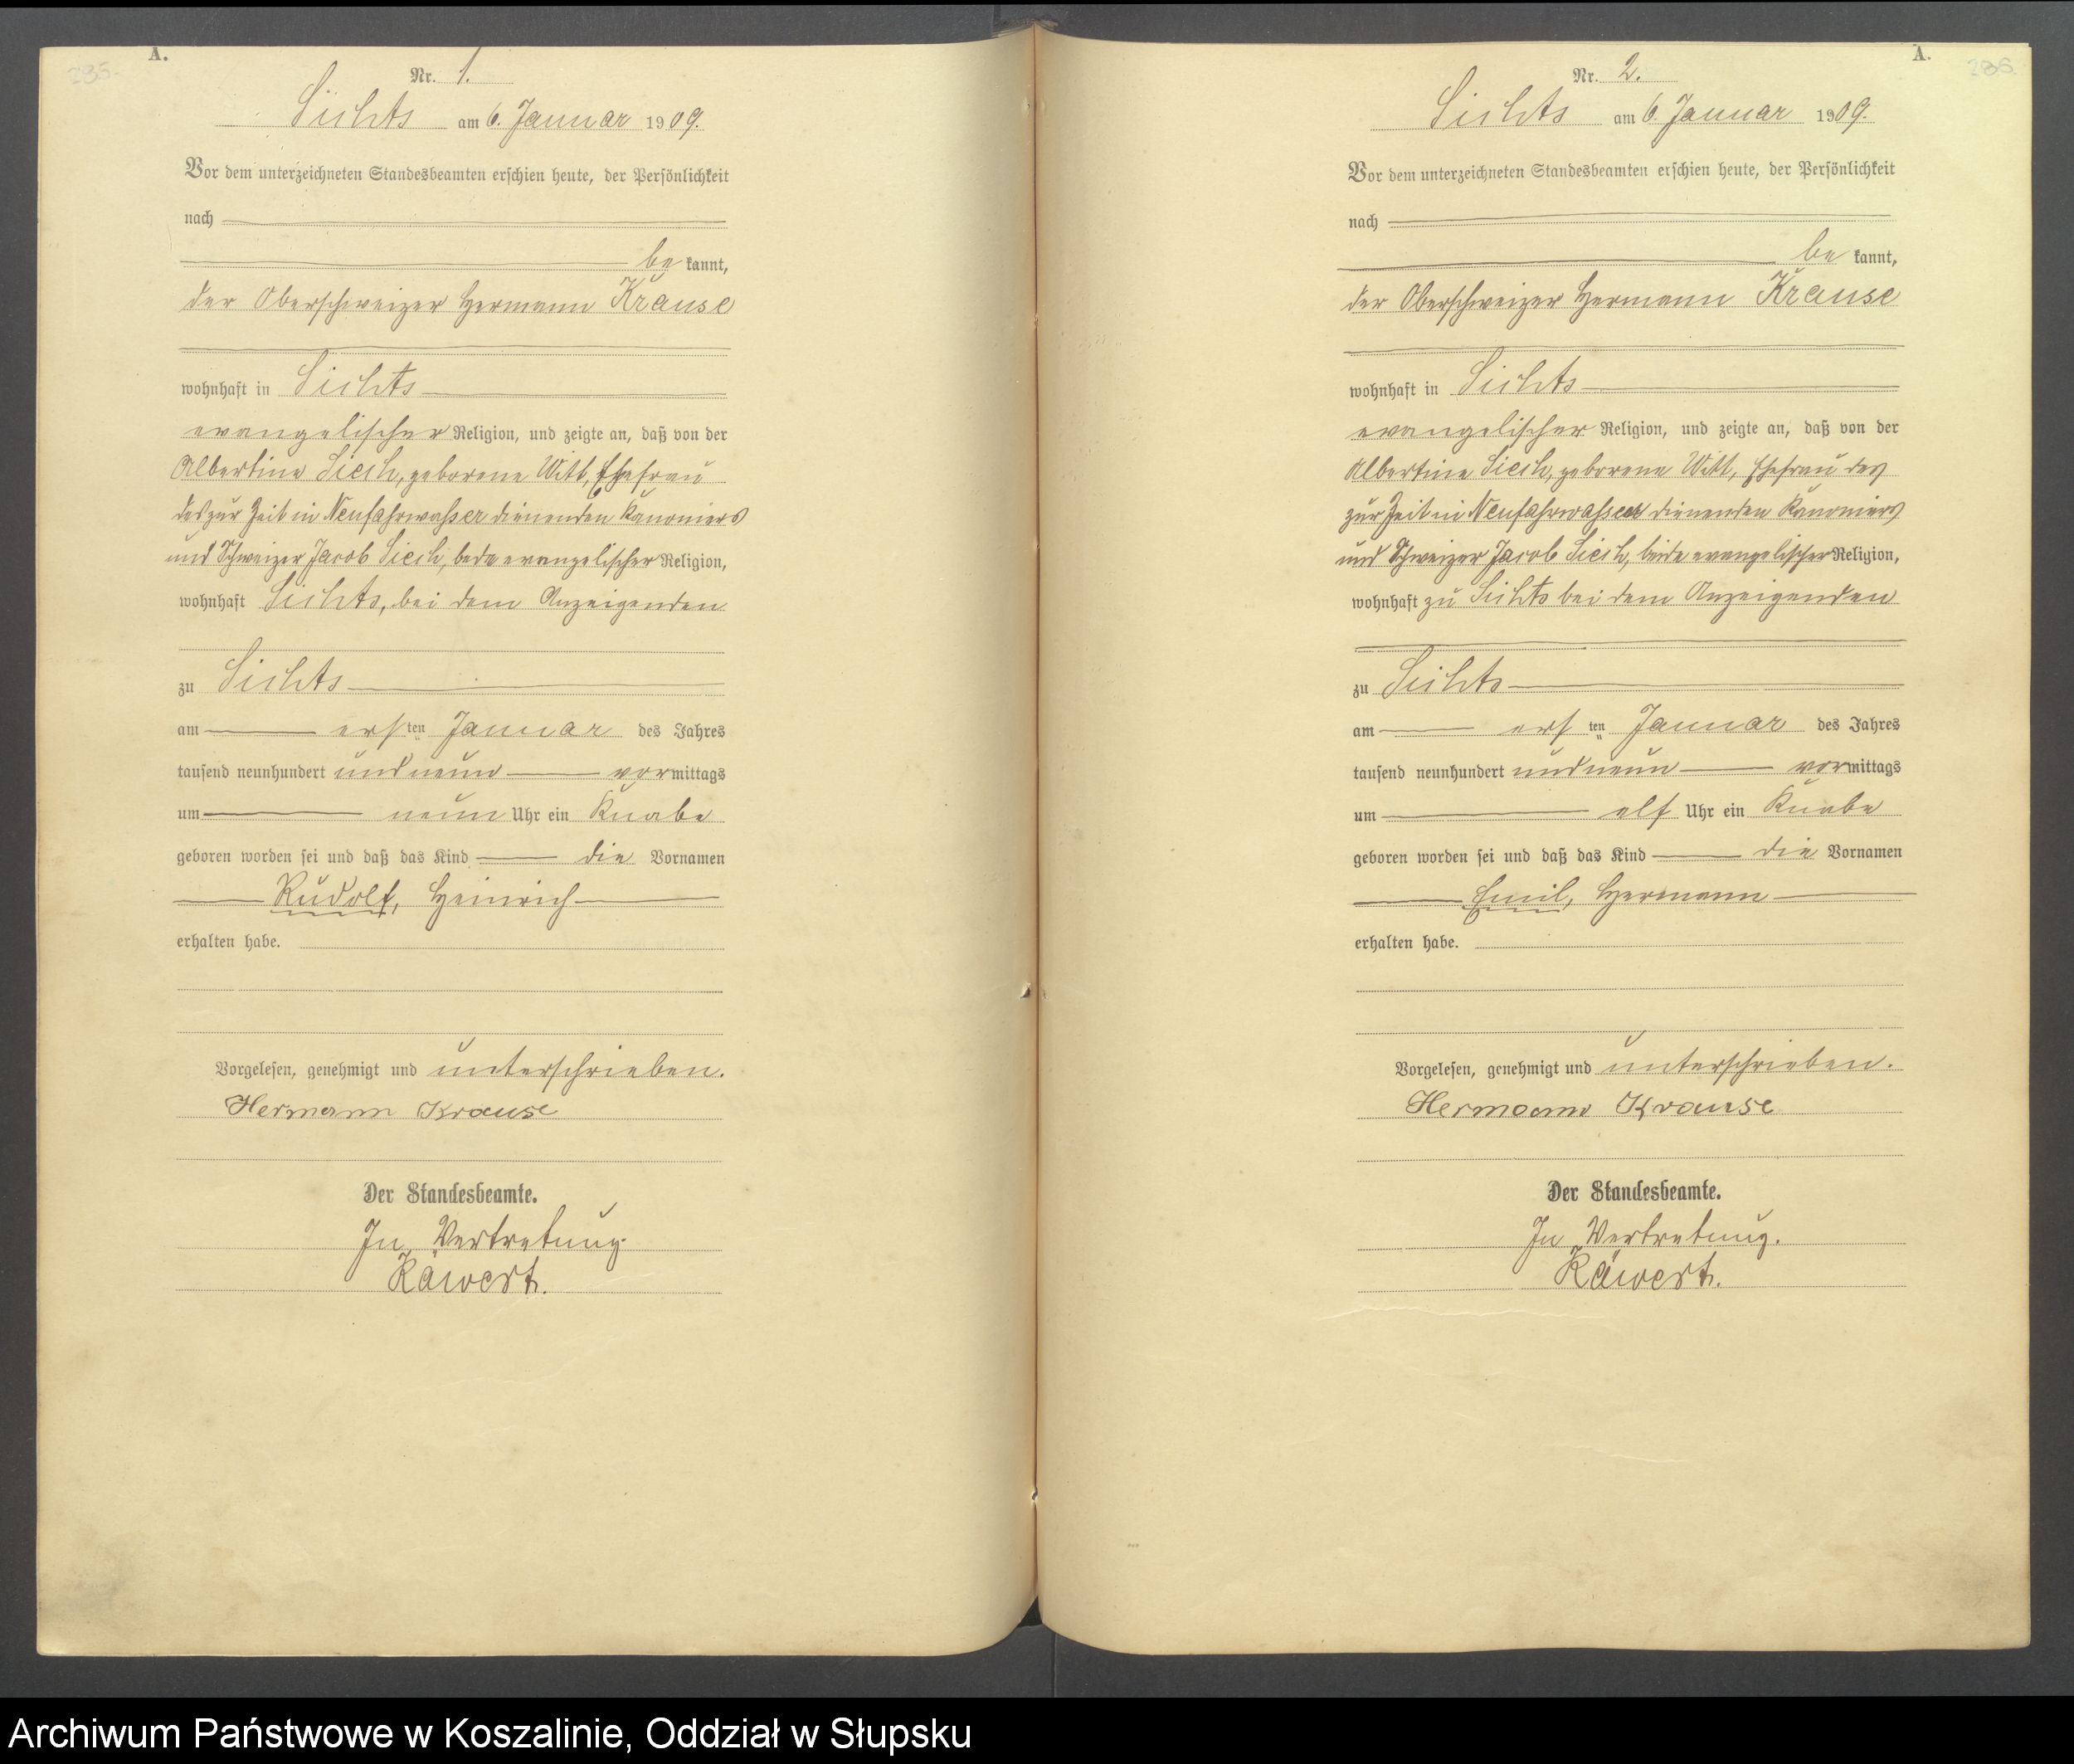 A.
295.
Nr. 1.
Sichts am 6. Januar 1909.
Vor dem unterzeichneten Standesbeamten erschien heute, der Persönlichkeit
nach
be kannt,
der Oberschweizer Hermann Krause
wohnhaft in Sichts
evangelischer Religion, und zeigte an, daß von der
Albertine Siech, geborene Witt, Ehefrau
des zur Zeit in Neufahrwasser dienenden Kanoniers
und Schweizer Jacob Siech, beide evangelischer Religion,
wohnhaft Sichts, bei dem Anzeigenden
zu Sichts
am ersten Januar des Jahres
tausend neunhundert und neun vormittags
um neun Uhr ein Knabe
geboren worden sei und daß das Kind die Vornamen
Rudolf, Heinrich
erhalten habe.
Vorgelesen, genehmigt und unterschrieben.
Hermann Krause
Der Standesbeamte.
In Vertretung.
Räwert.
A.
Nr. 2.
Sichts am 6. Januar 1909.
Vor dem unterzeichneten Standesbeamten erschien heute, der Persönlichkeit
nach
be kannt,
der Oberschweizer Hermann Krause
wohnhaft in Sichts
evangelischer Religion, und zeigte an, daß von der
Albertine Siech, geborene Witt, Ehefrau des
zur Zeit in Neufahrwasser dienenden Kanoniers
und Schweizer Jacob Siech, beide evangelischer Religion,
wohnhaft zu Sichts bei dem Anzeigenden
zu Sichts
am ersten Januar des Jahres
tausend neunhundert und neun vormittags
um elf Uhr ein Knabe
geboren worden sei und daß das Kind die Vornamen
Emil, Hermann
erhalten habe.
Vorgelesen, genehmigt und unterschrieben.
Hermann Krause
Der Standesbeamte.
In Vertretung.
Räwert.
Archiwum Państwowe w Koszalinie, Oddział w Słupsku